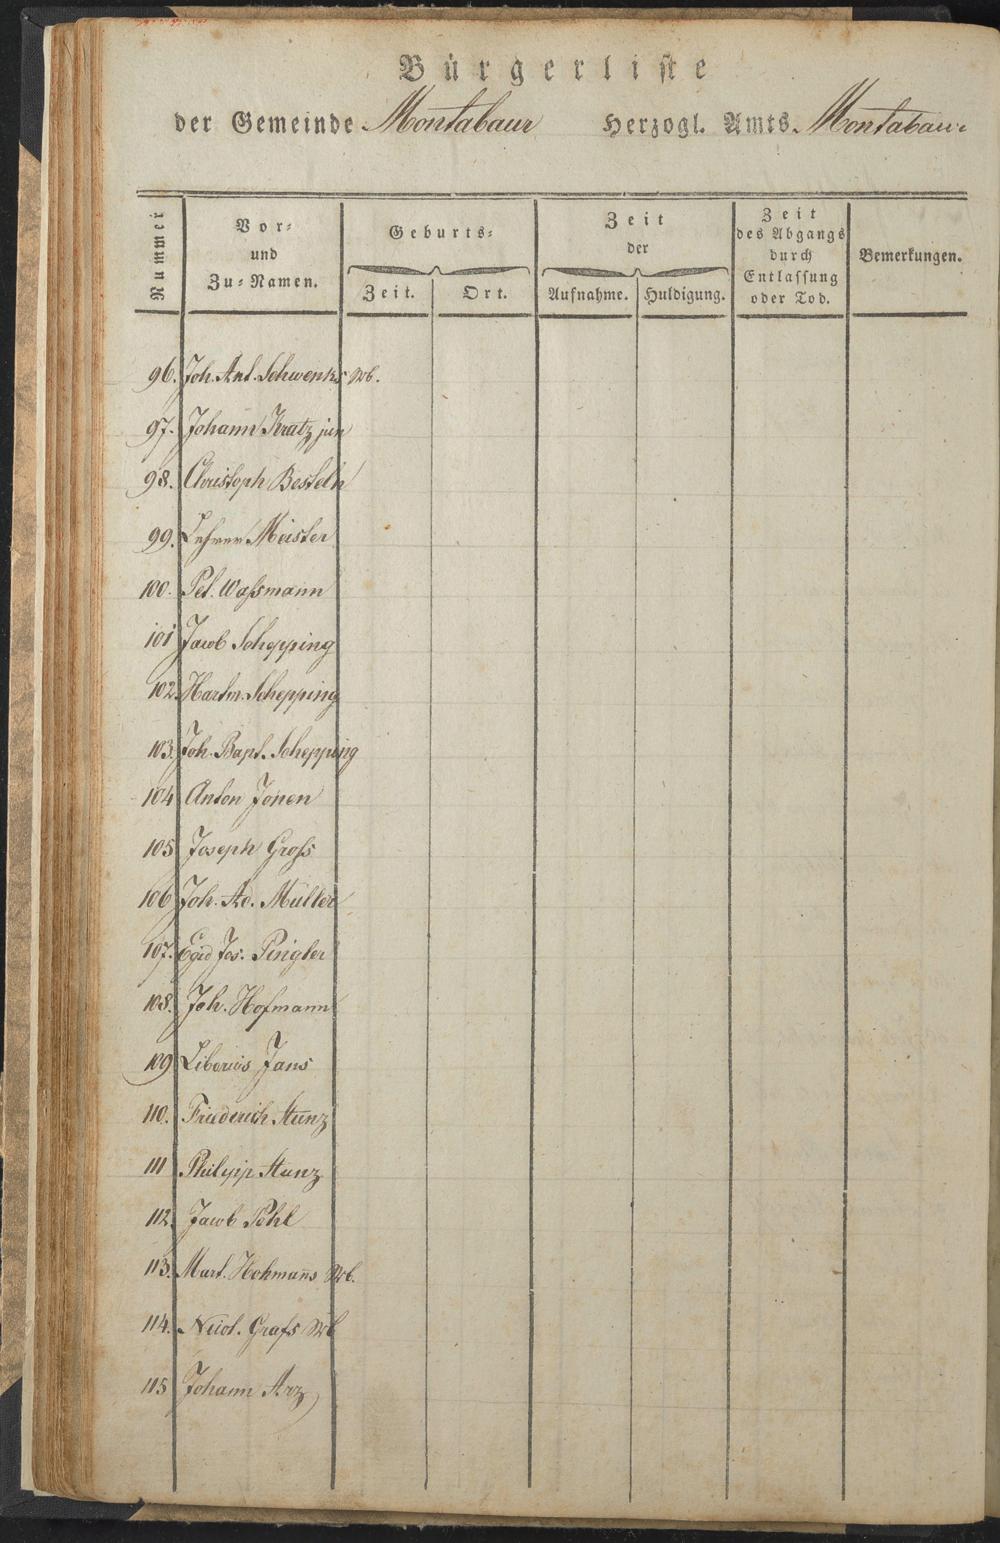 Bürgerliste
der Gemeinde Montabaur Herzogl. Amts Montabaur
Nummer
Vor-
und
Zu-Namen.
Geburts-
Zeit.
Ort.
Zeit
der
Aufnahme.
Huldigung.
Zeit
des Abgangs
durch
Entlassung
oder Tod.
Bemerkungen.
96. Joh. Ant. Schwenks Wb.
97. Johann Kratz jun
98. Christoph Besteln
99. Lehrer Meister
100. Pet. Waßmann
101 Jacob Schepping
102. Hartm. Schepping
103. Joh. Bapt. Schepping
104 Anton Jonen
105 Joseph Groß
106 Joh. Ad. Müller
107. Egid Jos. Pingler
108. Joh. Hofmann
109 Liborius Jans
110. Friederich Stunz
111 Philipp Stunz
112. Jacob Pöhl
113. Mart. Hohmanns Wb.
114. Nicol. Grafs Wb
115 Johann Arz